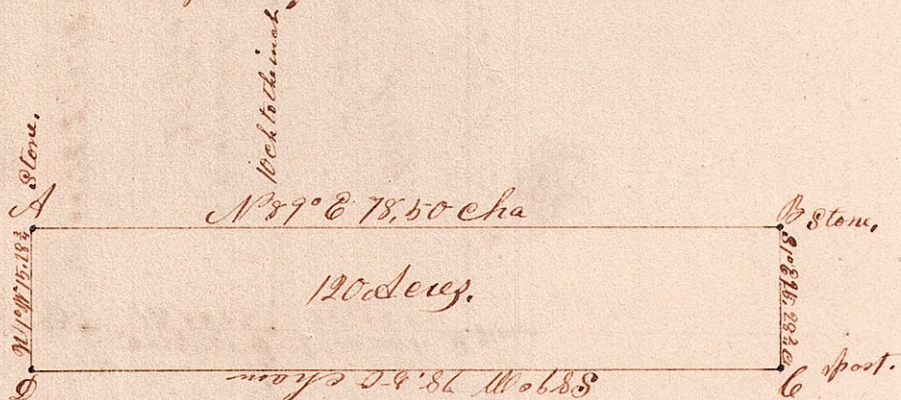 10 ch to the inch
Stone.
A
N 89° E 78,50 Cha
B Stone,
N 1° W 15.28¾
120 Acres.
S 1° E 15.28¾ C
D
S 89° W 78.50 Chain
C Post.